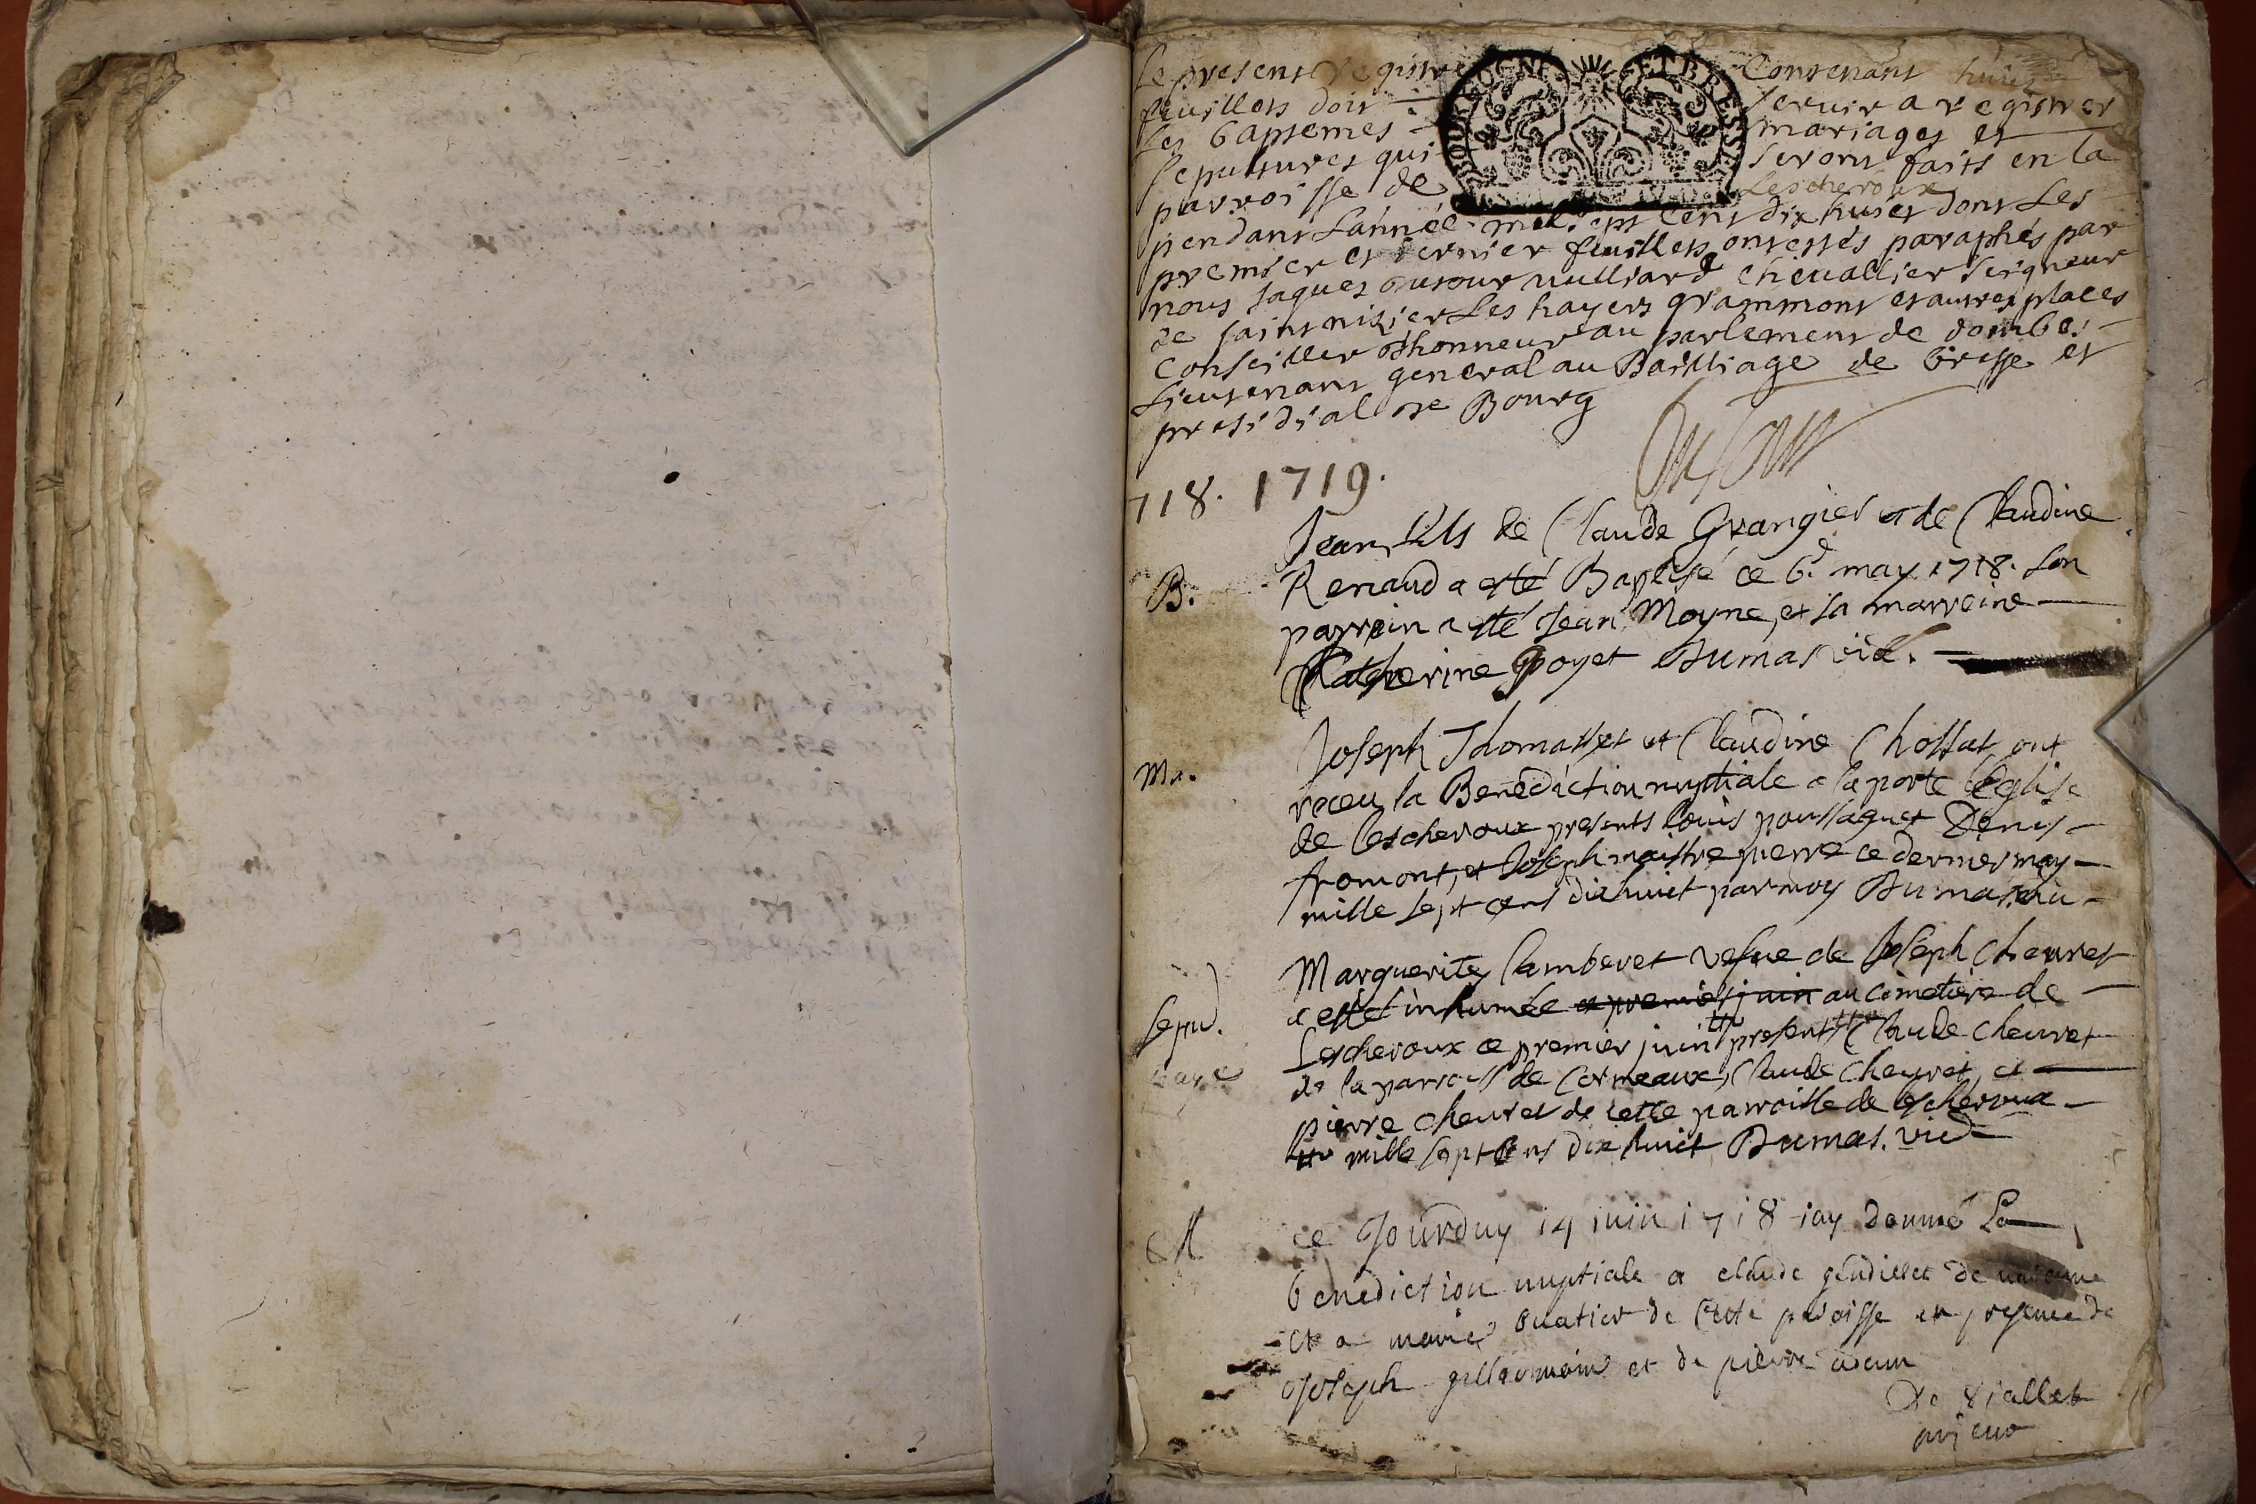 Le present registre Contenant huict
feuillets doit servir a registrer
Les baptemes mariages et
sepultures qui seront faits en la
parroisse de Lescheroux
pendant L'année mil sept Cent dix huict dont Les
premier et dernier feuillets ont estés paraphés par
nous Jaques outour vulliard chevallier seigneur
de saint nizier Les hayers grammont et autres places
Conseiller d'honneur au parlement de dombes
Lieutenant general au Bailliage de bresse et
presidial de Bourg
BOURGOGNE ET BRESSE
718. 1719.
Jean fils de Claude Grangier et de Claudine
B. Renaud a esté Baptisé ce 6e may 1718. son
parrein a esté Jean Moyne, et sa marreine
Catherine poyet Dumas vic.
Joseph Thomasset et Claudine Chossat ont
Ma. receu la Benediction nuptiale a la porte l'Eglise
de lescheroux presents louis poussaguet Denis
fromont, et Joseph maistre pierre ce dernier may
mille sept cens dixhuict par moy Dumas vic
Marguerite lamberet vefue de Joseph Cheuret
a estet inhumée ce premier juin au cimetiere de
Sepu. Lescheroux ce premier juin present Claude Cheuret
de la parroisse de Cormeaux, Claude Cheuret, et
pierre Cheuret de cette parroisse de lescheroux
mille sept cens dix huict Dumas. vic
M ce Jourduy 14 juin 1718 jay donné La
benediction nuptiale a claude de
et a marie de cette paroisse en presence de
Joseph et de pierre